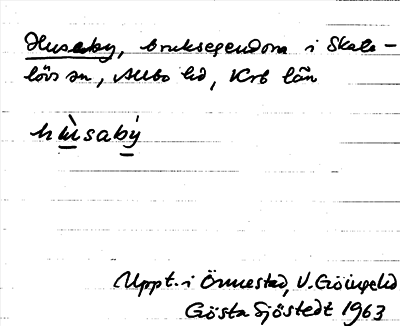 Husaby, bruksegendom i Skate-
lövs sn, Allbo hd, Krb län
hùsabý
Uppt. i Örmestad, V. Göinge hd
Gösta Sjöstedt 1963